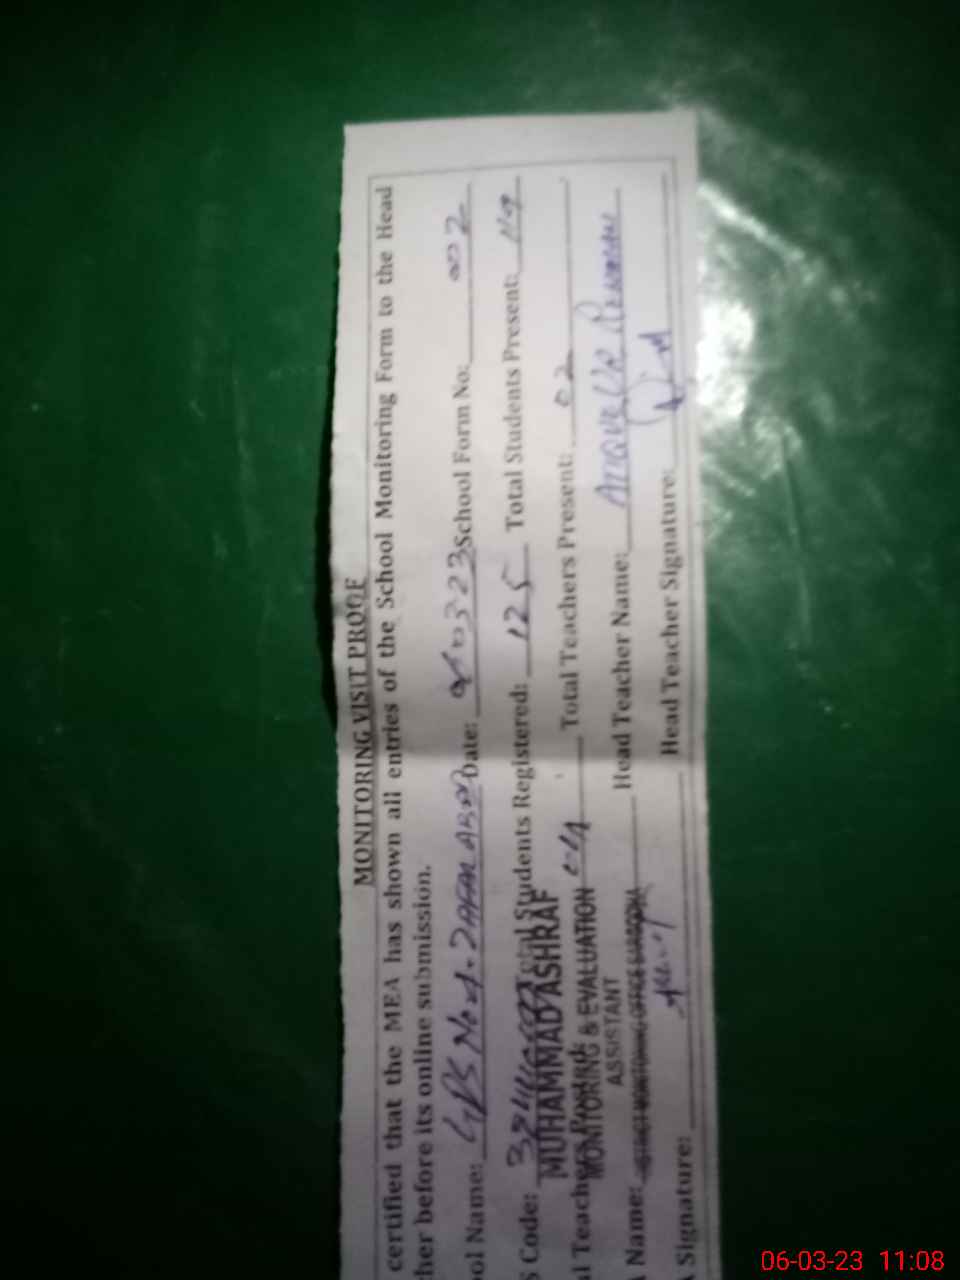 MONITORING VISIT PROOF
certified that the MEA has shown all entries of the School Monitoring Form to the Head
her before its online submission.
ool Name: GPS No 2 Date: 060323 School Form No: 002
S Code: Total Students Registered: 125 Total Students Present:
MUHAMMAD ASHRAF
l Teachers Posted: 04 Total Teachers Present: 02
MONITORING & EVALUATION
ASSISTANT
Name: Head Teacher Name: Ur Rehman
DISTRICT MONITORING OFFICE SARGODHA
Signature: Head Teacher Signature:
06-03-23 11:08